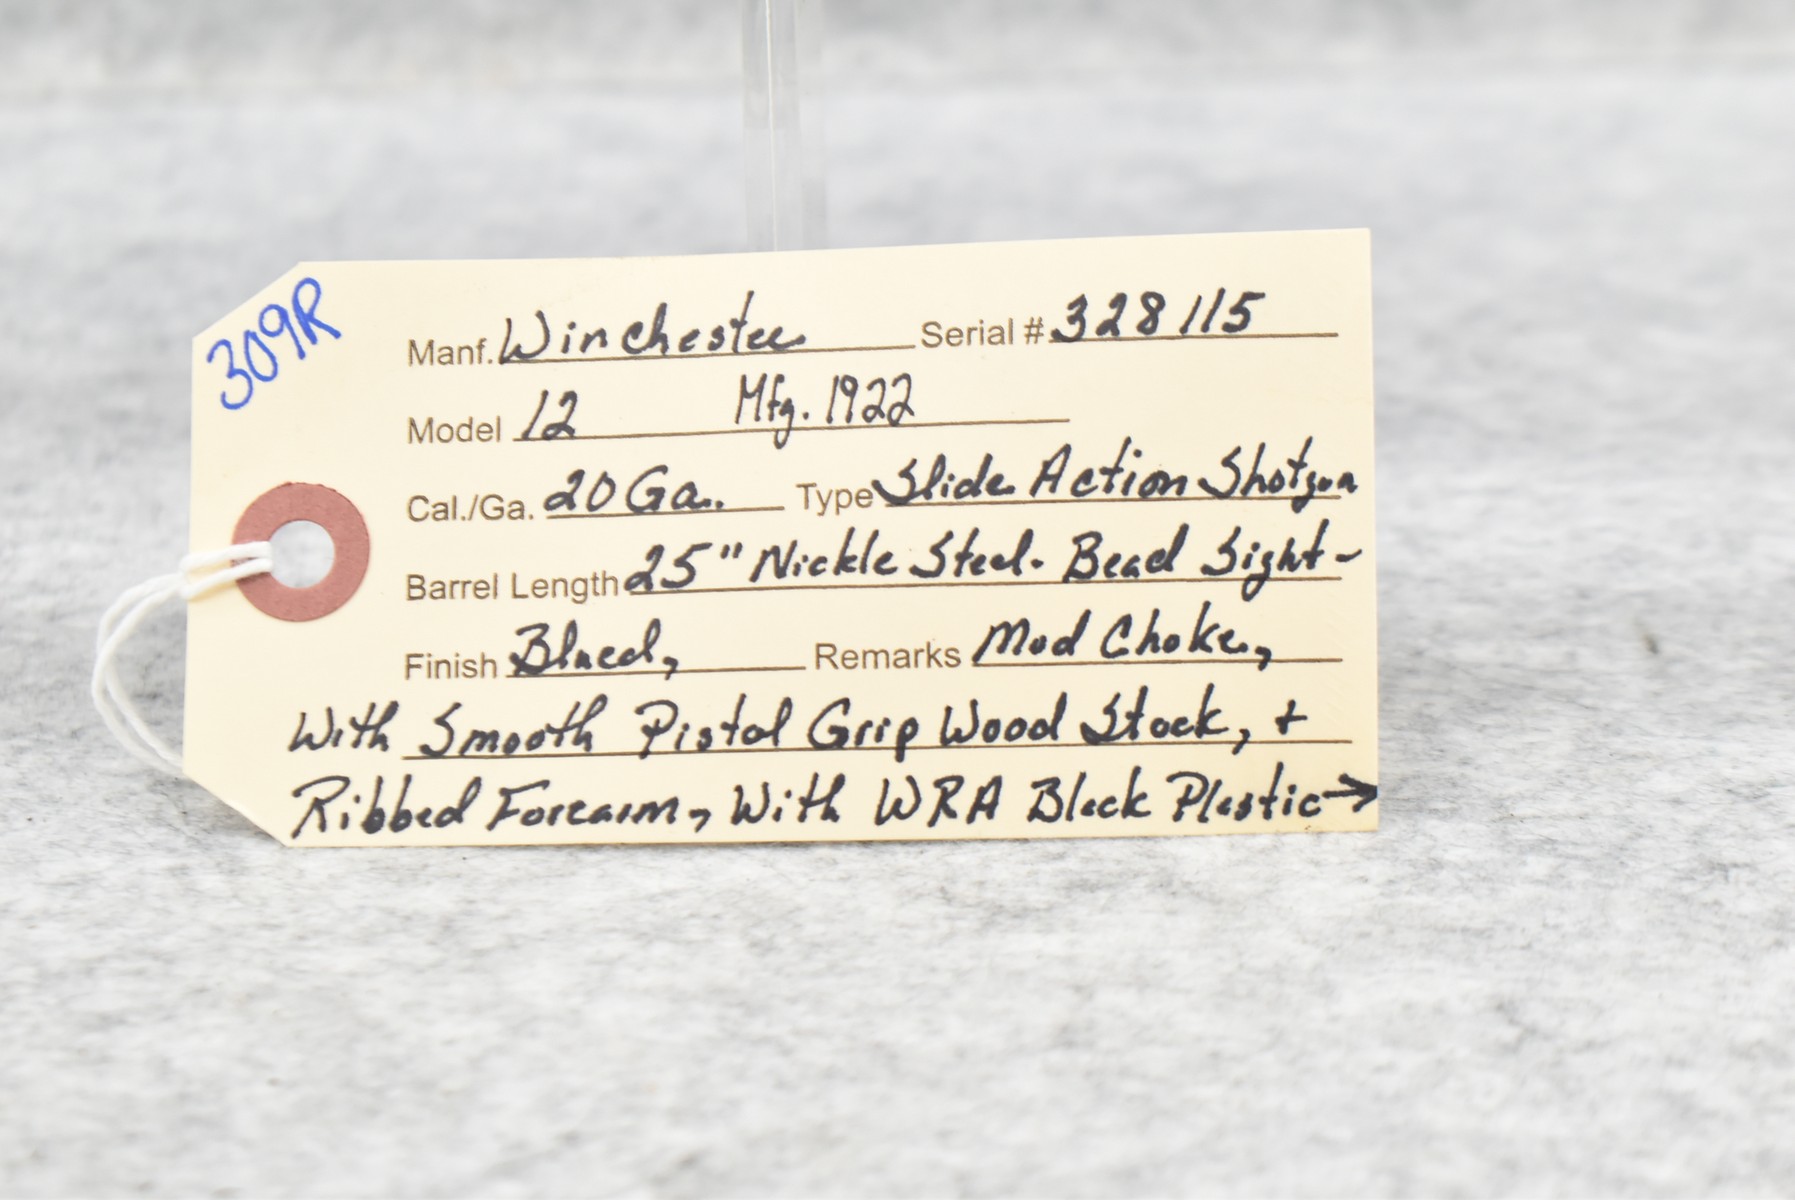 309R
Manf. Winchester Serial # 328115
Model 12 Mfg. 1922
Cal./Ga. 20 Ga. Type Slide Action Shotgun
Barrel Length 25" Nickle Steel. Bead Sight -
Finish Blued, Remarks Mod Choke,
With Smooth Pistol Grip Wood Stock, +
Ribbed Forearm, With WRA Black Plastic →